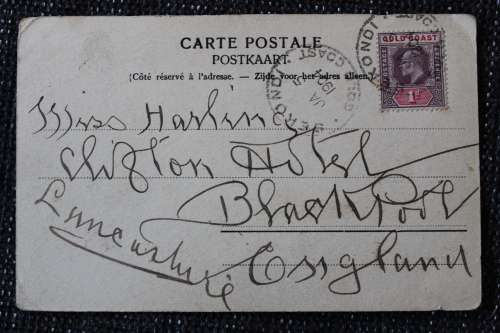 CARTE POSTALE
POSTKAART
(Côté réservé à l'adresse. – Zijde voor het adres alleen.)
GOLD COAST
1d
Miss Harling
Clifton Hotel
Blackpool
Lancashire
England